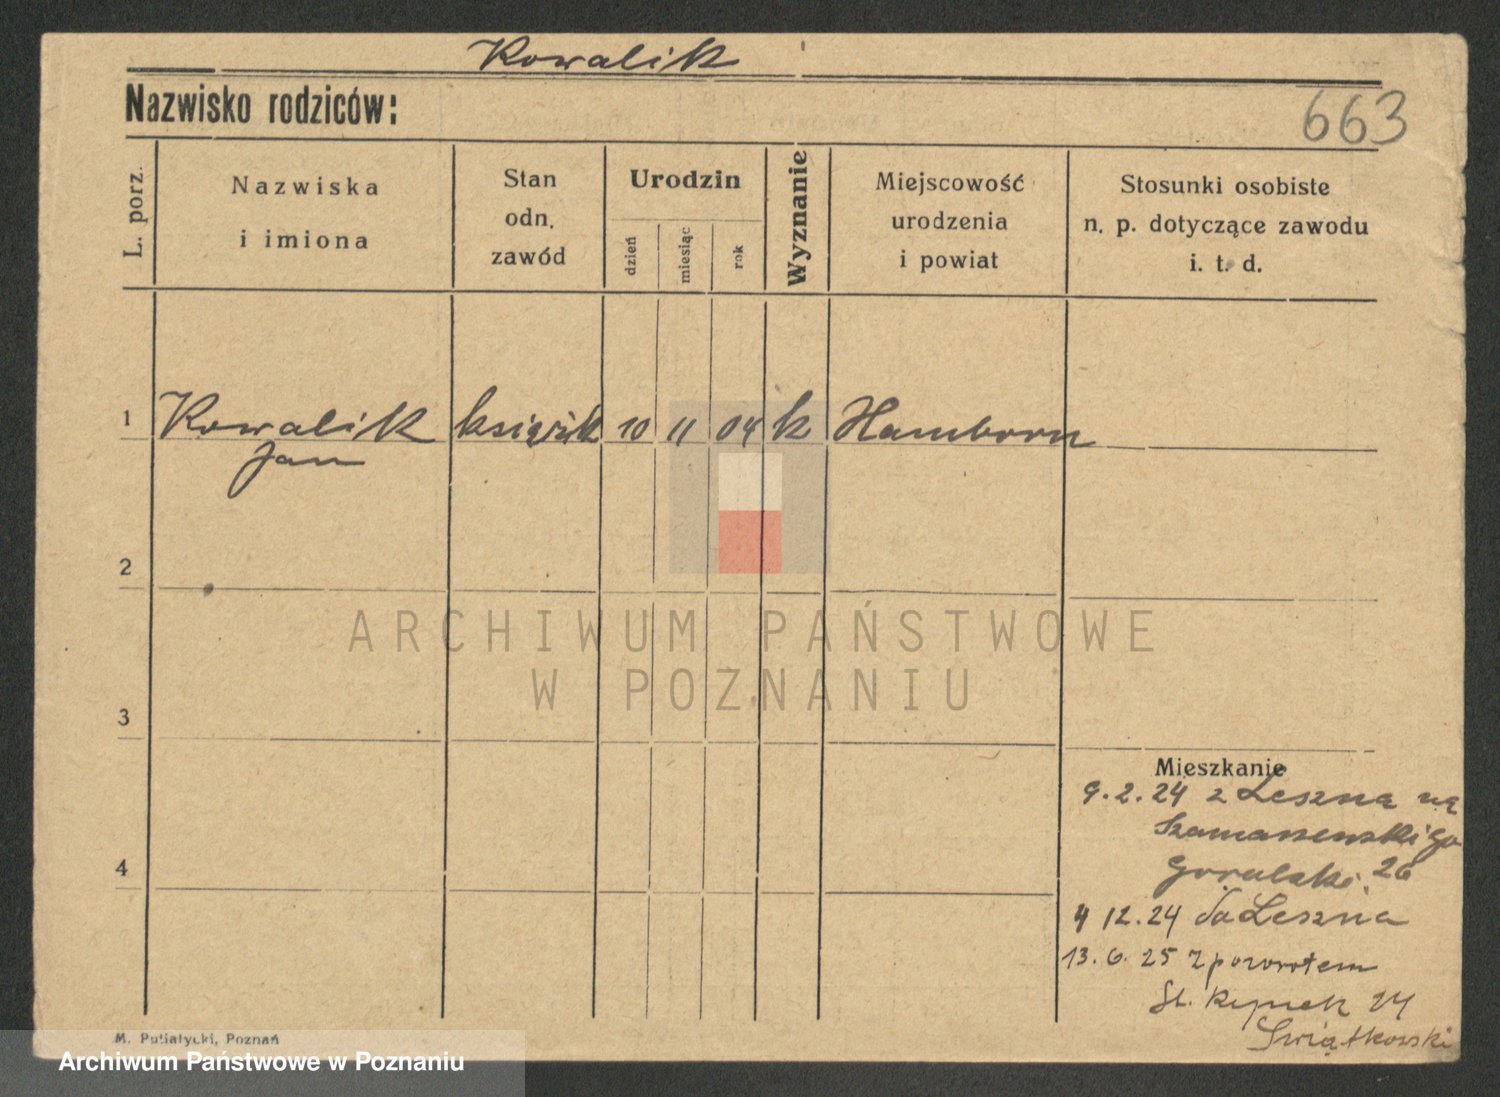 Kowalik
Nazwisko rodziców:
663
L. porz.
Nazwiska
i imiona
Stan
odn.
zawód
Urodzin
dzień
miesiąc
rok
Wyznanie
Miejscowość
urodzenia
i powiat
Stosunki osobiste
n. p. dotyczące zawodu
i. t. d.
1 Kowalik 10 11 04 k Hamborn
Jan
2
ARCHIWUM PAŃSTWOWE
W POZNANIU
3
Mieszkanie
9. 2. 24 z Leszna
4
26
4 12. 24 do Leszna
13. 6. 25 z powrotem
St. Rynek 24
Swiątkowski
M. Putiatycki, Poznań
Archiwum Państwowe w Poznaniu